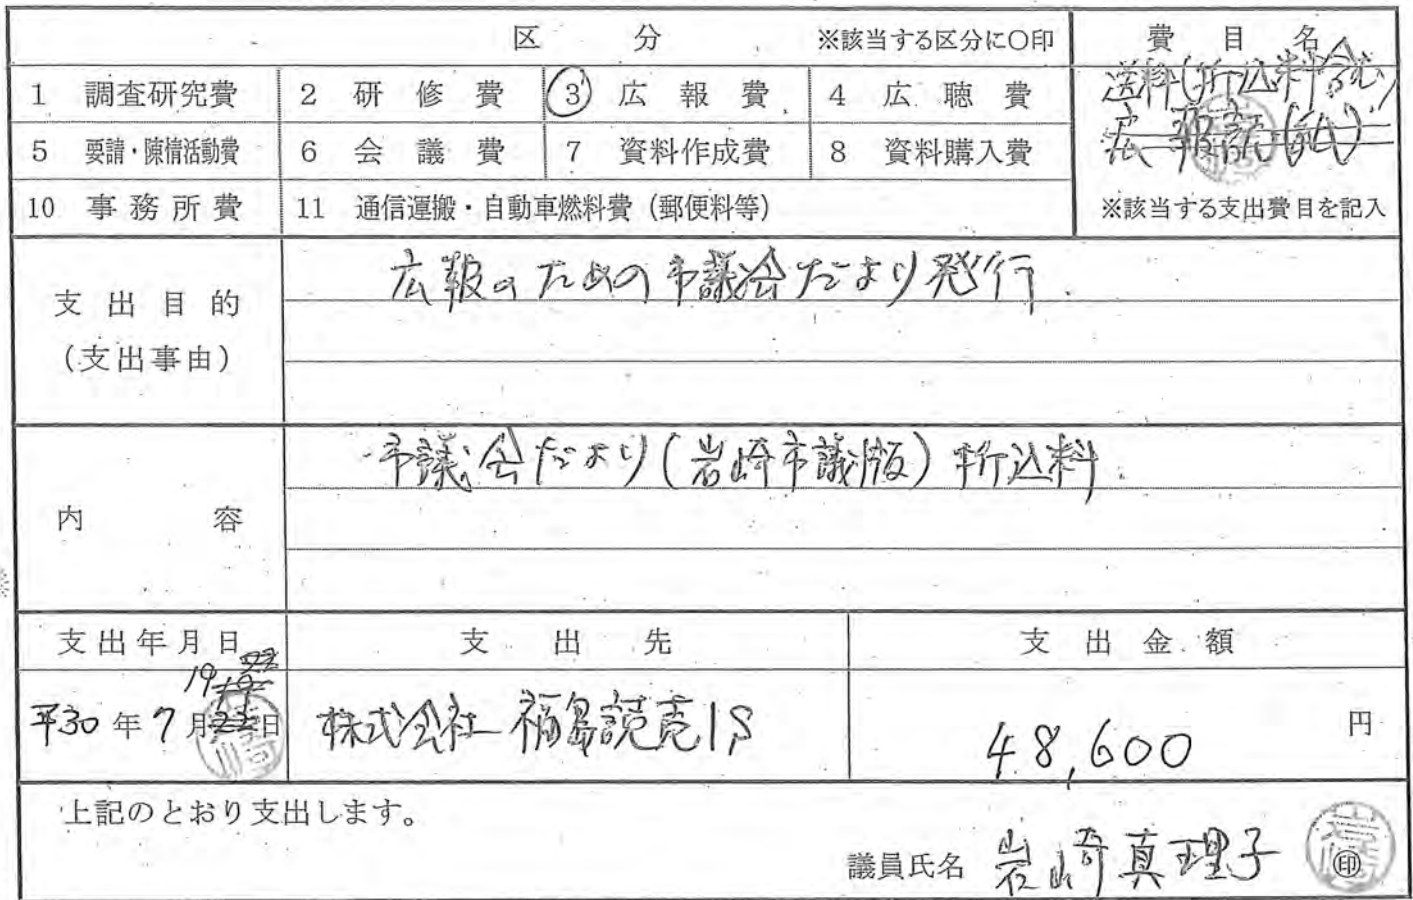 区分 ※該当する区分に○印 費目名
1 調査研究費 2 研修費 ③ 広報費 4 広聴費 送料(折込料含む)
5 要請・陳情活動費 6 会議費 7 資料作成費 8 資料購入費 広報
10 事務所費 11 通信運搬・自動車燃料費(郵便料等) ※該当する支出費目を記入
支出目的
(支出事由)
広報のための市議会だより発行.
内容
市議会だより(岩崎市議版)折込料.
支出年月日 支出先 支出金額
19
平30年7月日 株式会社 福島読売IS 48,600 円
上記のとおり支出します。
議員氏名 岩崎真理子 ㊞